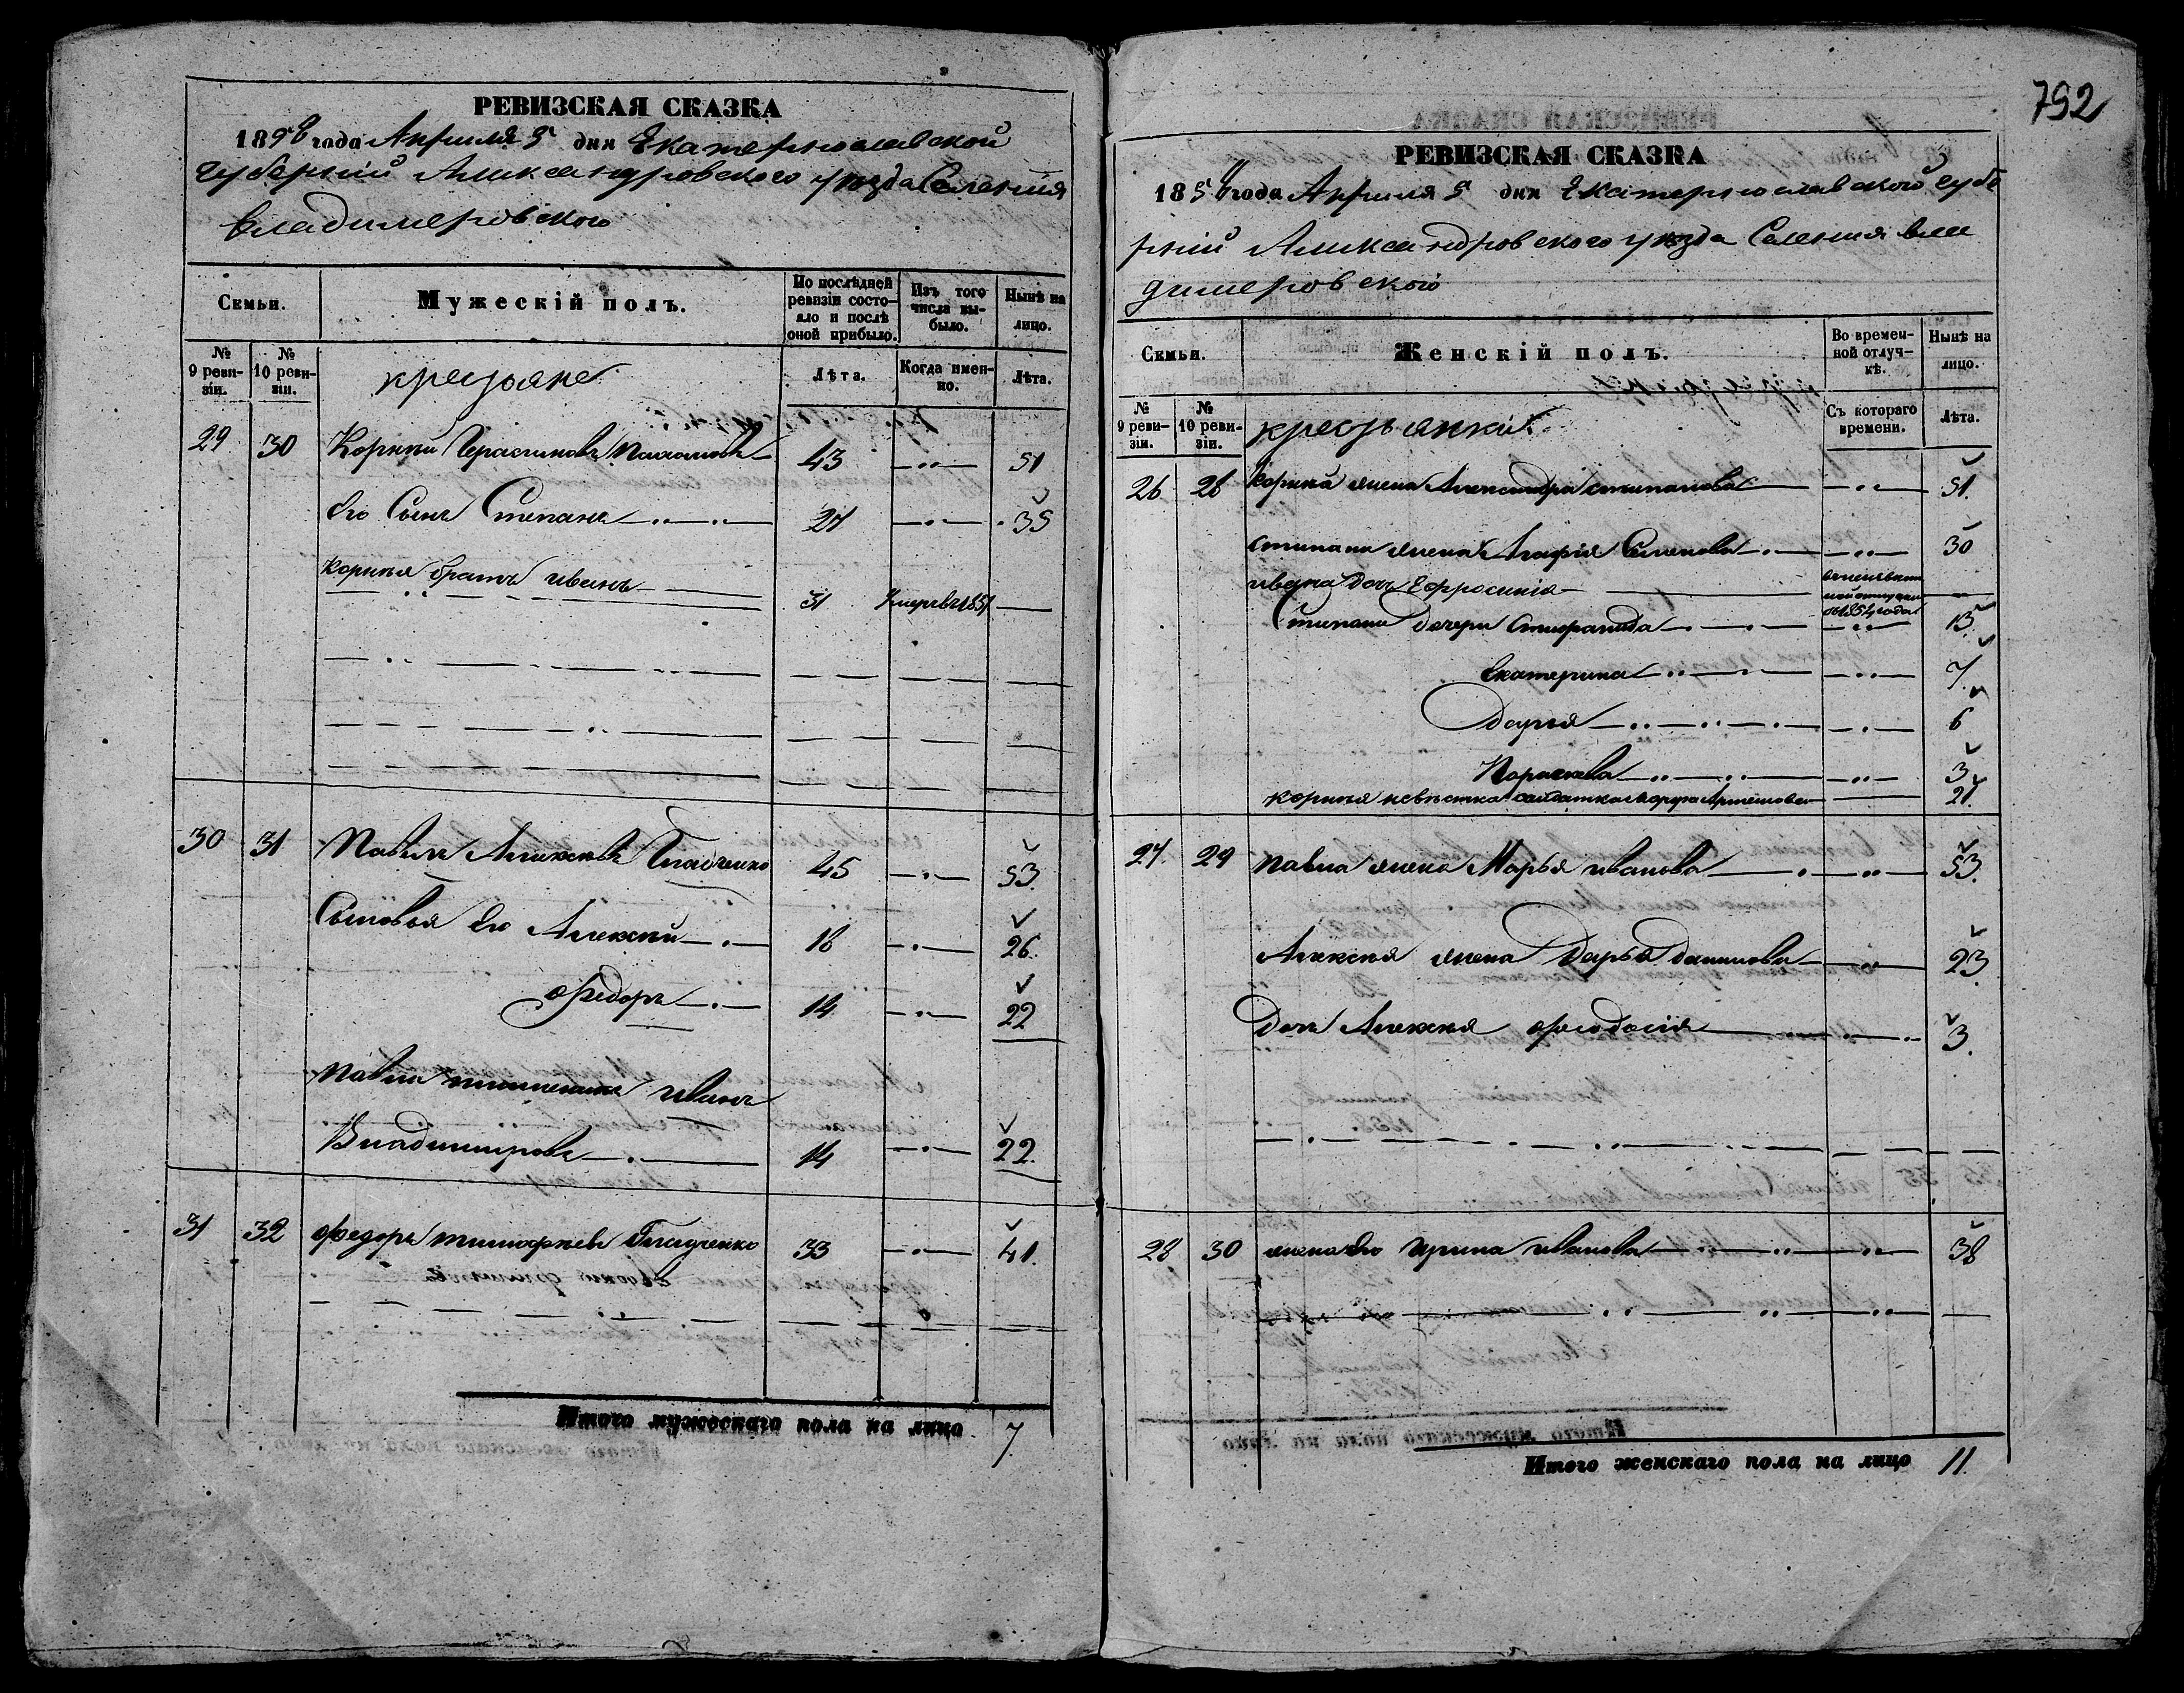 РЕВИЗСКАЯ СКАЗКА
1858 года Априля 5 дня Екатеринославской
Губерніи Александровского уезда Селенія
Владимеровского
Семьи.
Мужескій полъ.
По послѣдней ревизіи состояло и послѣ оной прибыло.
Изъ того числа выбыло.
Нынѣ на лицо.
№ 9 ревизіи.
№ 10 ревизіи.
крестьяне
Лѣта.
Когда именно.
Лѣта.
29 30 Корнѣй Герасимовъ 43 51
Его Сынъ Степанъ 27 35
Корнѣя братъ иванъ 31 Умеръ 1851
30 31 Павелъ Алексѣевъ 45 53.
Сыновья Его Алексѣй 18 26.
Федоръ 14 22
Павла племенникъ иванъ
Владимировъ 14 22.
31 32 Федоръ тимофѣевъ 33 41.
Итого мужескаго пола на лицо 7
792
РЕВИЗСКАЯ СКАЗКА
1858 года Априля 5 дня Екатеринославской Губе
рніи Александровского уезда Селенія Вла
димеровского
Семьи.
Женскій полъ.
Во временной отлучкѣ.
Нынѣ на лицо.
№ 9 ревизіи.
№ 10 ревизіи.
крестьянкі
Съ котораго времени.
Лѣта.
26 28 Корнѣя жена Александра степанова 51.
степана жена Агафія Семенова 30
ивана дочь Ефросинія 1854 года
Степана дочери Стефанида 13.
Екатерина 7.
Дарья 6
Параскева 3
корнѣя невѣстка салдатка Марфа Артемова 27.
27. 29 Павла жена Марья иванова 53.
Алексѣя жена Дарья данилова 23.
Дочь Алексѣя феодосія 3.
28 30 жена Его Ирина иванова 38
Итого женскаго пола на лицо 11.